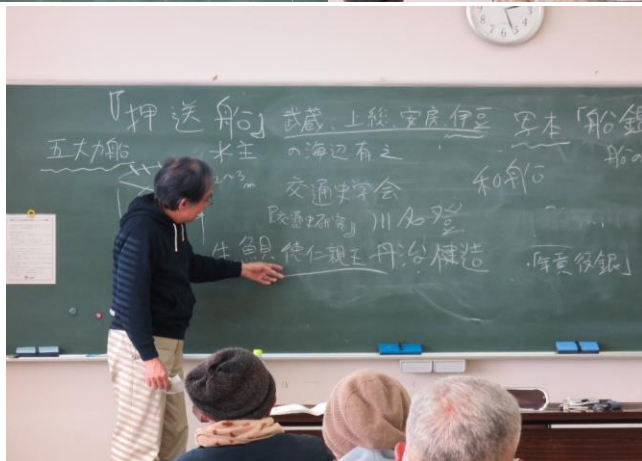 『押送船』 武蔵、上総、安房、伊豆 写本「船銀
五大力船 水主 の海辺有之 船の
交通史学会 和船
『交通史研究』 川名登
生魚 徳仁親王 丹治健造